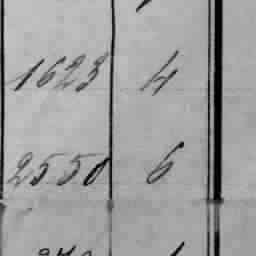 1623 4
2550 6